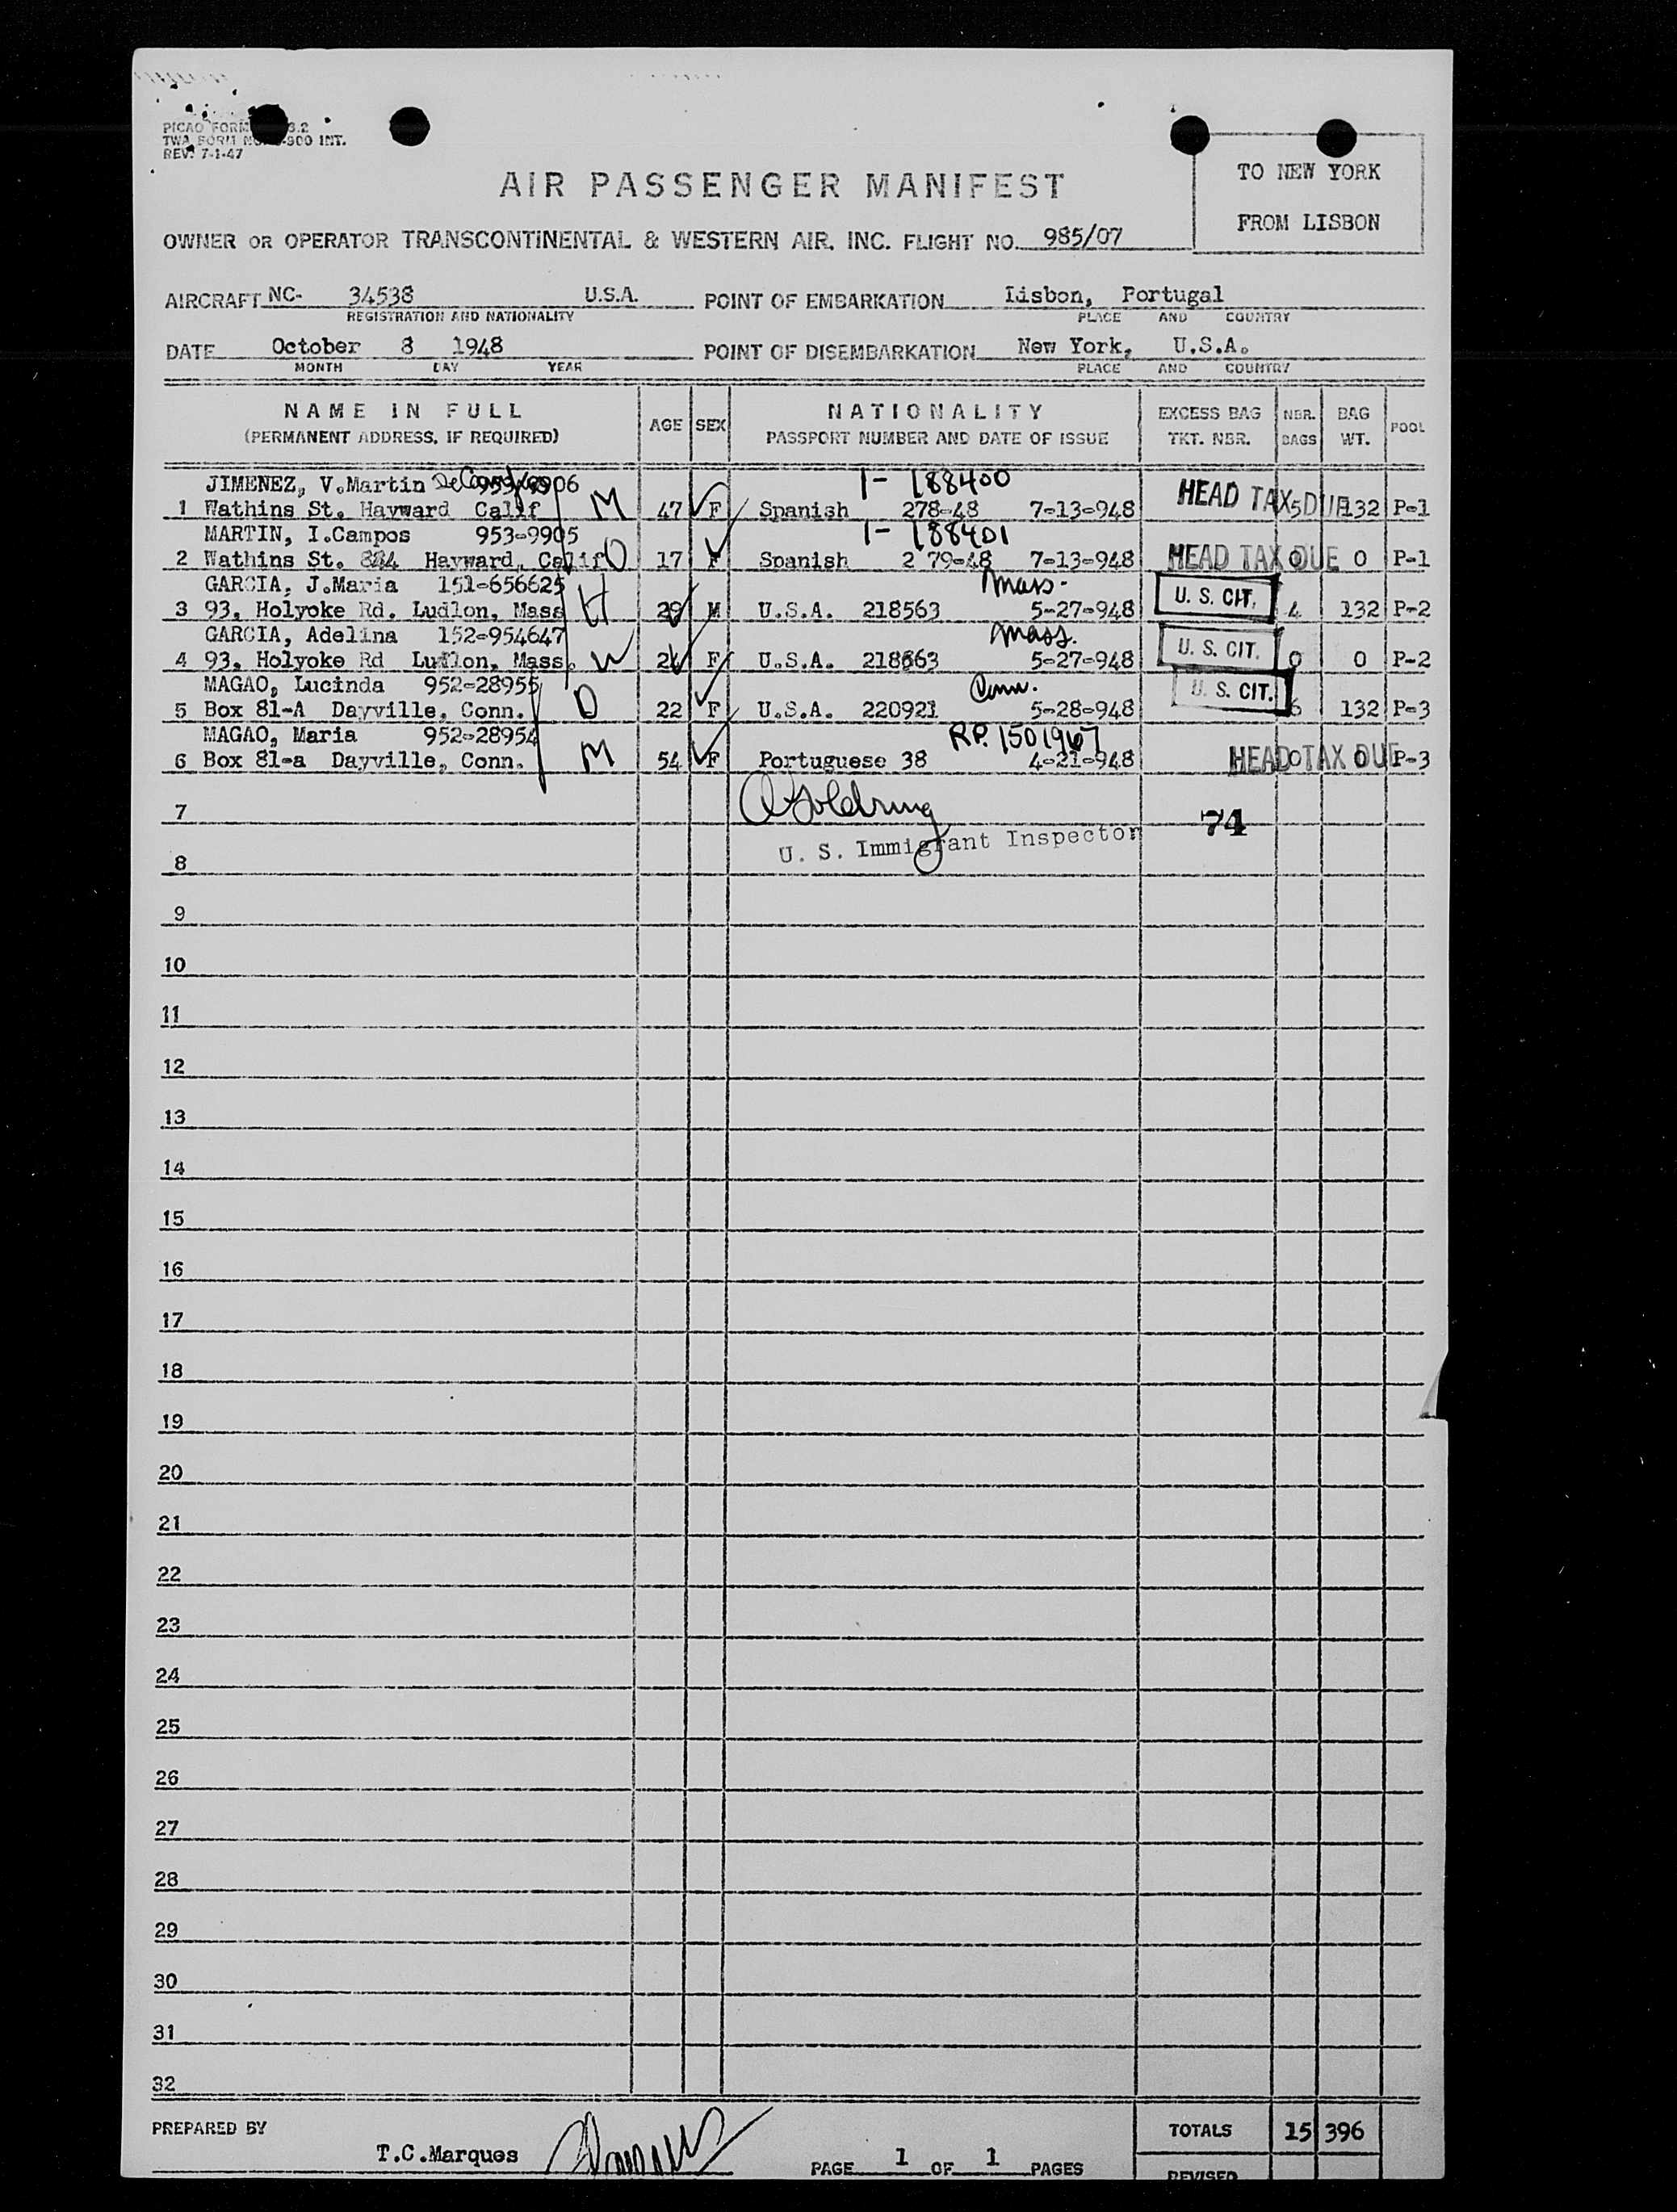 PICAO FORM 3.2
TWA FORM NO. -900 INT.
REV. 7-1-47
TO NEW YORK
FROM LISBON
AIR PASSENGER MANIFEST
OWNER OR OPERATOR TRANSCONTINENTAL & WESTERN AIR, INC. FLIGHT NO. 985/07
AIRCRAFT NC- 34538 U.S.A. POINT OF EMBARKATION Lisbon, Portugal
REGISTRATION AND NATIONALITY PLACE AND COUNTRY
DATE October 8 1948 POINT OF DISEMBARKATION New York, U.S.A.
MONTH DAY YEAR PLACE AND COUNTRY
NAME IN FULL AGE SEX NATIONALITY EXCESS BAG NBR. BAG POOL
(PERMANENT ADDRESS, IF REQUIRED) PASSPORT NUMBER AND DATE OF ISSUE TKT. NBR. BAGS WT.
JIMENEZ, V.Martin 953-9906 1- 188400
1 Wathins St. Hayward Calif M 47 F Spanish 278-48 7-13-948 HEAD TAX DUE 5 132 P-1
MARTIN, I.Campos 953-9905 1- 188401
2 Wathins St. 884 Hayward, Calif D 17 F Spanish 2 79-48 7-13-948 HEAD TAX DUE 0 0 P-1
GARCIA, J.Maria 151-656625 Mass.
3 93, Holyoke Rd. Ludlon, Mass H 29 M U.S.A. 218563 5-27-948 U. S. CIT. 4 132 P-2
GARCIA, Adelina 152-954647 Mass.
4 93, Holyoke Rd Ludlon, Mass. W 24 F U.S.A. 218663 5-27-948 U. S. CIT. 0 0 P-2
MAGAO, Lucinda 952-28955 Conn.
5 Box 81-A Dayville, Conn. D 22 F U.S.A. 220921 5-28-948 U. S. CIT. 6 132 P-3
MAGAO, Maria 952-28954 RP. 1501967
6 Box 81-a Dayville, Conn. M 54 F Portuguese 38 4-21-948 HEAD TAX DUE 0 0 P-3
7 Goldring 74
U. S. Immigrant Inspector
8
9
10
11
12
13
14
15
16
17
18
19
20
21
22
23
24
25
26
27
28
29
30
31
32
PREPARED BY TOTALS 15 396
T.C.Marques
PAGE 1 OF 1 PAGES REVISED